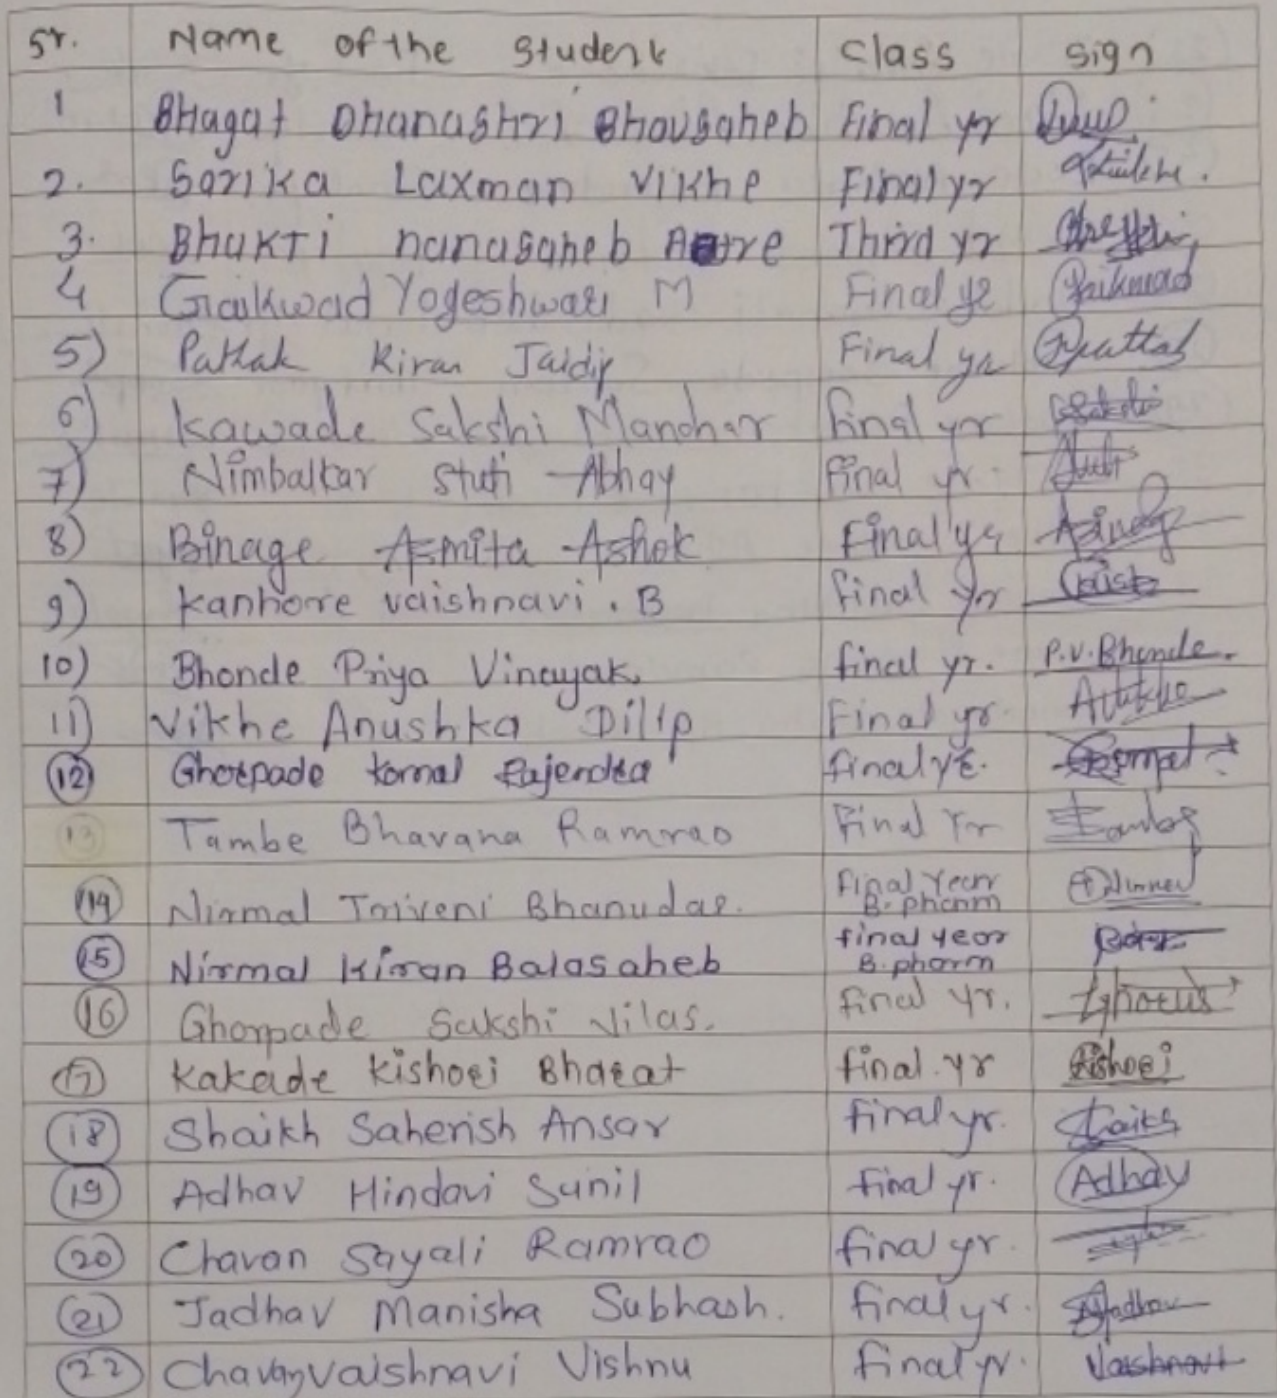 Sr. Name of the Student Class Sign
1 Bhagat Dhanashri Bhousaheb Final yr
2. Sarika Laxman Vikhe Final yr
3. Bhakti nanasaheb Third yr
4 Gaikwad Yogeshwari M Final ye Gaikwad
5) Pattak Kiran Jaidip Final ya
6) Kawade Sakshi Manohar final yr
7) Nimbalkar Stuti Abhay final yr.
8) Binage Asmita Ashok Final ya
9) Kanhore vaishnavi . B final yr
10) Bhonde Priya Vinayak. final yr. P.V.Bhonde.
11) Vikhe Anushka Dilip Final yr.
12 Ghorpade komal Rajendra final yr.
13 Tambe Bhavana Ramrao Final Yr
14 Nirmal Triveni Bhanudas. Final Year
B. pharm
15 Nirmal Kiran Balasaheb final year
B. pharm
16 Ghorpade Sakshi Vilas. final yr.
17 Kakade Kishori Bharat final.yr Kishori
18 Shaikh Saherish Ansar final yr.
19 Adhav Hindavi Sunil final yr. Adhav
20 Chavan Sayali Ramrao final yr.
21 Jadhav Manisha Subhash. final yr. Jadhav
22 Chavan Vaishnavi Vishnu final yr. Vaishnavi